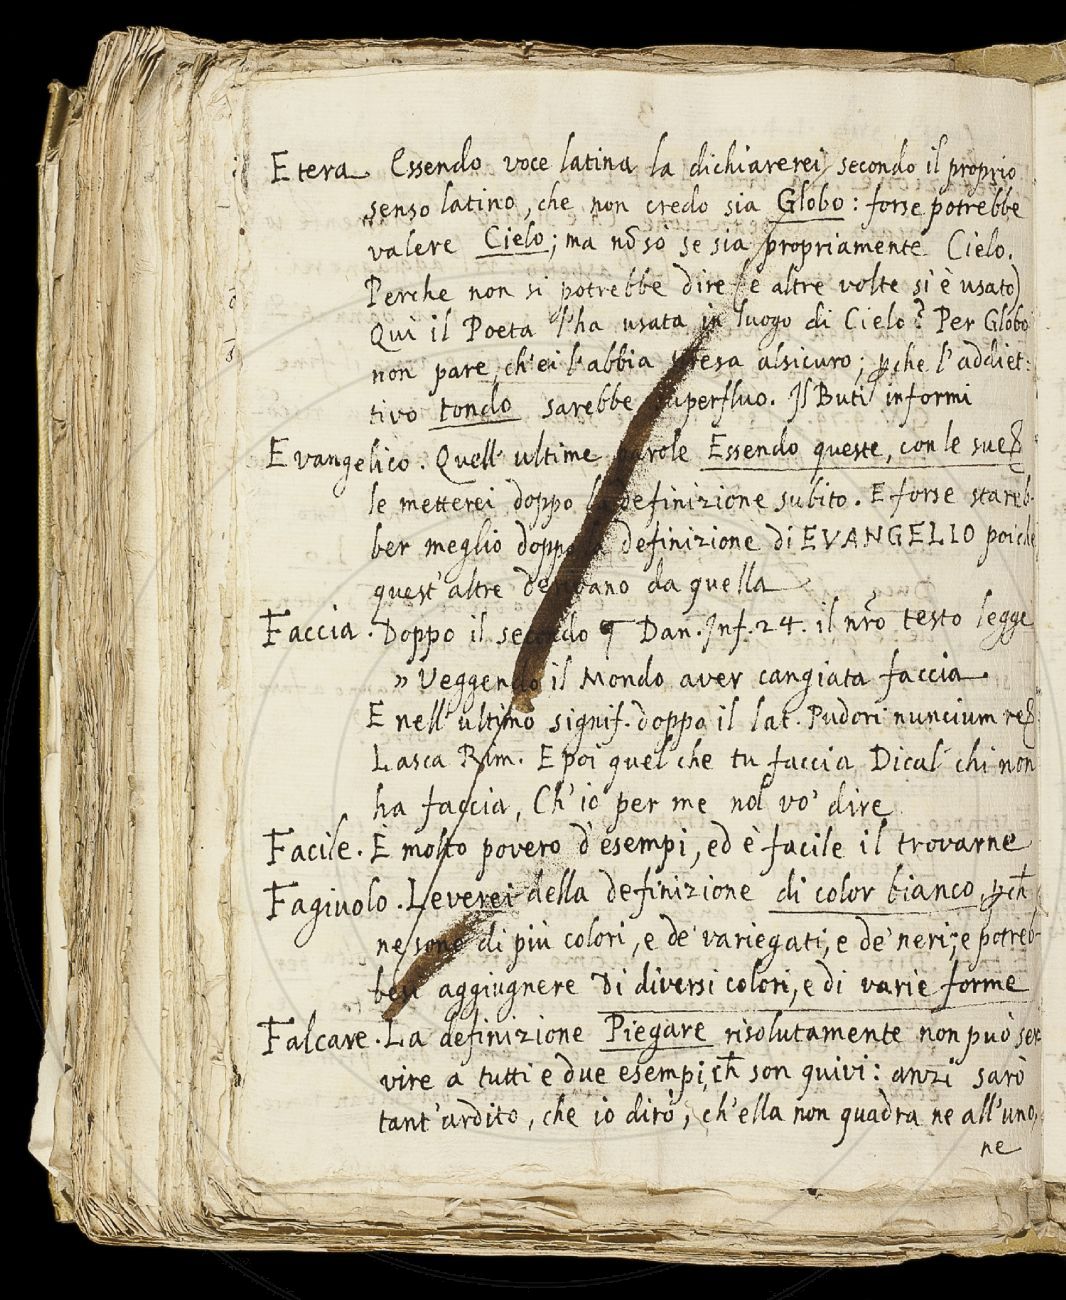 Etera. Essendo voce latina la dichiarerei secondo il proprio
senso latino, che non credo sia Globo: forse potrebbe
valere Cielo; ma nō so se sia propriamente Cielo.
Perche non si potrebbe dire (e altre volte si è usato)
Quì il Poeta l'ha usata in luogo di Cielo? Per Globo
non pare, ch'ei l'abbia presa alsicuro; ꝑche l'addiet:
tivo tondo sarebbe superfluo. Il Buti informi
Evangelico. Quell' ultime parole Essendo queste, con le sue
le metterei doppo la definizione subito. E forse stareb-
ber meglio doppo la definizione di EVANGELIO poiche
quest'altre derivano da quella
Faccia. Doppo il secondo § Dan. Inf. 24. il nr̃o testo legge
» Veggendo il Mondo aver cangiata faccia.
E nell' ultimo signif. doppo il lat. Pudori nuncium re
Lasca Rim. E poi quel che tu faccia Dical chi non
ha faccia, Ch'io per me nol vo' dire
Facile. È molto povero d'esempi, ed è facile il trovarne
Fagiuolo. Leverei della definizione di color bianco, ꝑch̄
ne sono di più colori, e de' variegati, e de' neri; e potreb-
besi aggiugnere Di diversi colori, e di varie forme
Falcare. La definizione Piegare risolutamente non può ser
vire a tutti e due esempi, ch̄ son quivi: anzi sarò
tant'ardito, che io dirò, ch'ella non quadra ne all'uno,
ne